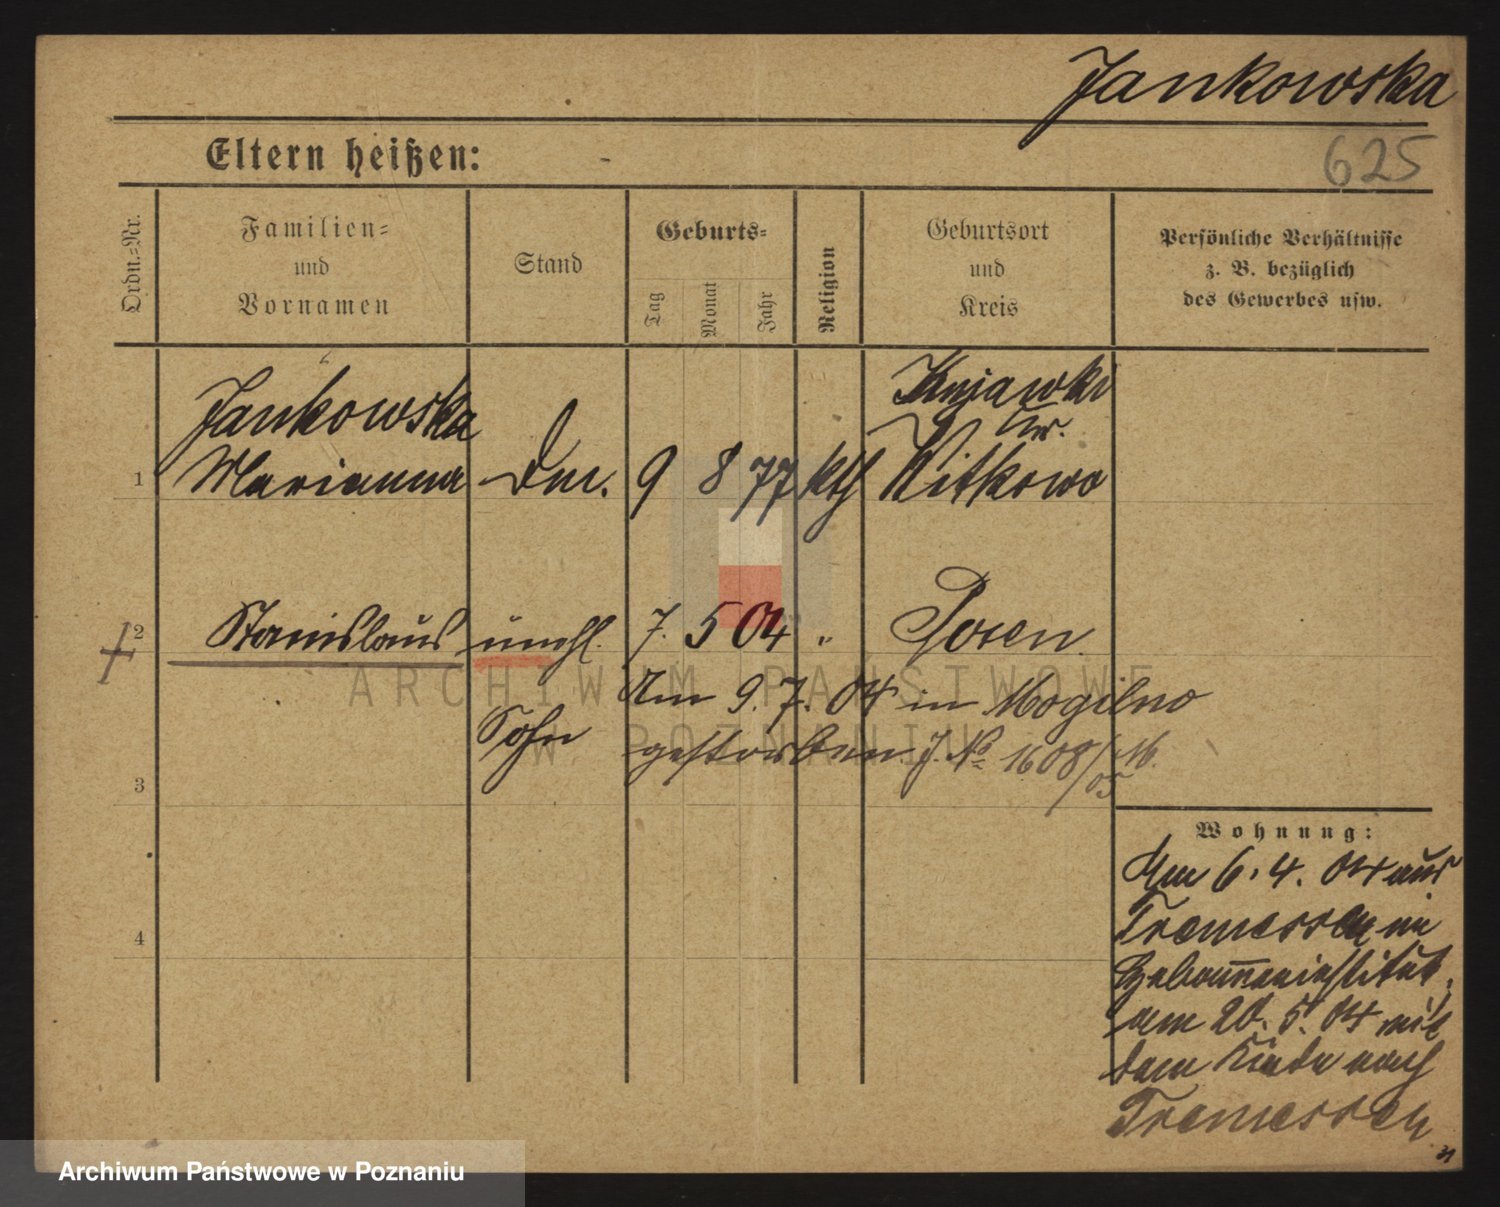 Jankowska
625
Eltern heißen: -
Ordn.-Nr.
Familien- und Vornamen
Stand
Geburts-
Tag
Monat
Jahr
Religion
Geburtsort und Kreis
Persönliche Verhältnisse
z. B. bezüglich
des Gewerbes usw.
Kujawki
Jankowska
Kr.
1 Marianna 9 8 77 kth Witkowo
2 Stanislaus unehl. 7. 5 04 " Posen.
Am 9. 7. 04 in Mogilno
Sohn
gestorben J. No 1608/05
3
Wohnung:
Am 6. 4. 04 aus
Tremessen im
4
Hebammeninstitut,
am 20. 5. 04 mit
dem Kinde nach
Tremessen
ARCHIWUM PAŃSTWOWE
W POZNANIU
Archiwum Państwowe w Poznaniu